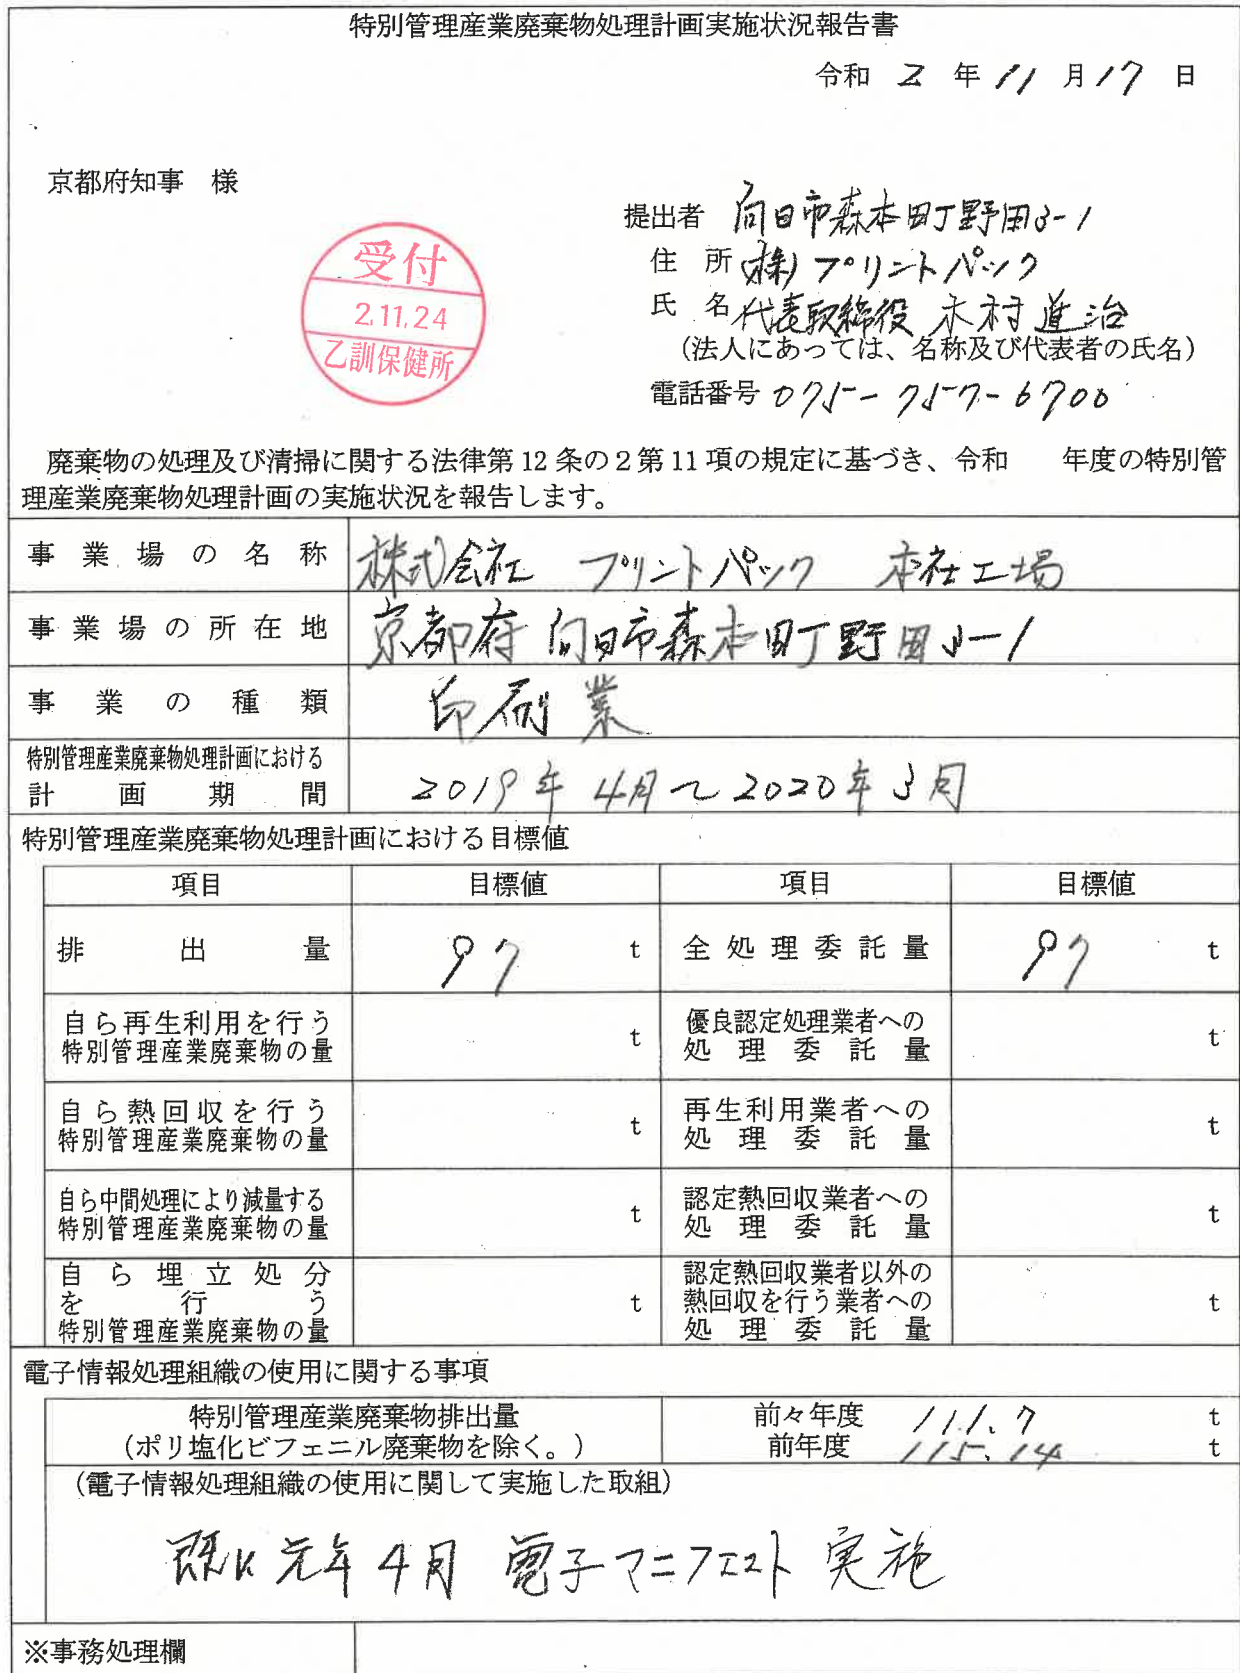 特別管理産業廃棄物処理計画実施状況報告書
令和 2 年 11 月 17 日
京都府知事 様
提出者 向日市森本町野田3-1
住 所 (株)プリントパック
氏 名 代表取締役 木村 進治
(法人にあっては、名称及び代表者の氏名)
電話番号 075-757-6700
受付
2.11.24
乙訓保健所
廃棄物の処理及び清掃に関する法律第12条の2第11項の規定に基づき、令和 年度の特別管
理産業廃棄物処理計画の実施状況を報告します。
事業場の名称 株式会社 プリントパック 本社工場
事業場の所在地 京都府向日市森本町野田3-1
事業の種類 印刷業
特別管理産業廃棄物処理計画における
計画期間 2019年4月~2020年3月
特別管理産業廃棄物処理計画における目標値
項目 目標値 項目 目標値
排出量 97 t 全処理委託量 97 t
自ら再生利用を行う
特別管理産業廃棄物の量 t
優良認定処理業者への
処理委託量 t
自ら熱回収を行う
特別管理産業廃棄物の量 t
再生利用業者への
処理委託量 t
自ら中間処理により減量する
特別管理産業廃棄物の量 t
認定熱回収業者への
処理委託量 t
自ら埋立処分
を行う
特別管理産業廃棄物の量 t
認定熱回収業者以外の
熱回収を行う業者への
処理委託量 t
電子情報処理組織の使用に関する事項
特別管理産業廃棄物排出量
(ポリ塩化ビフェニル廃棄物を除く。)
前々年度 111.7 t
前年度 115.14 t
(電子情報処理組織の使用に関して実施した取組)
既に元年4月 電子マニフェスト 実施
※事務処理欄